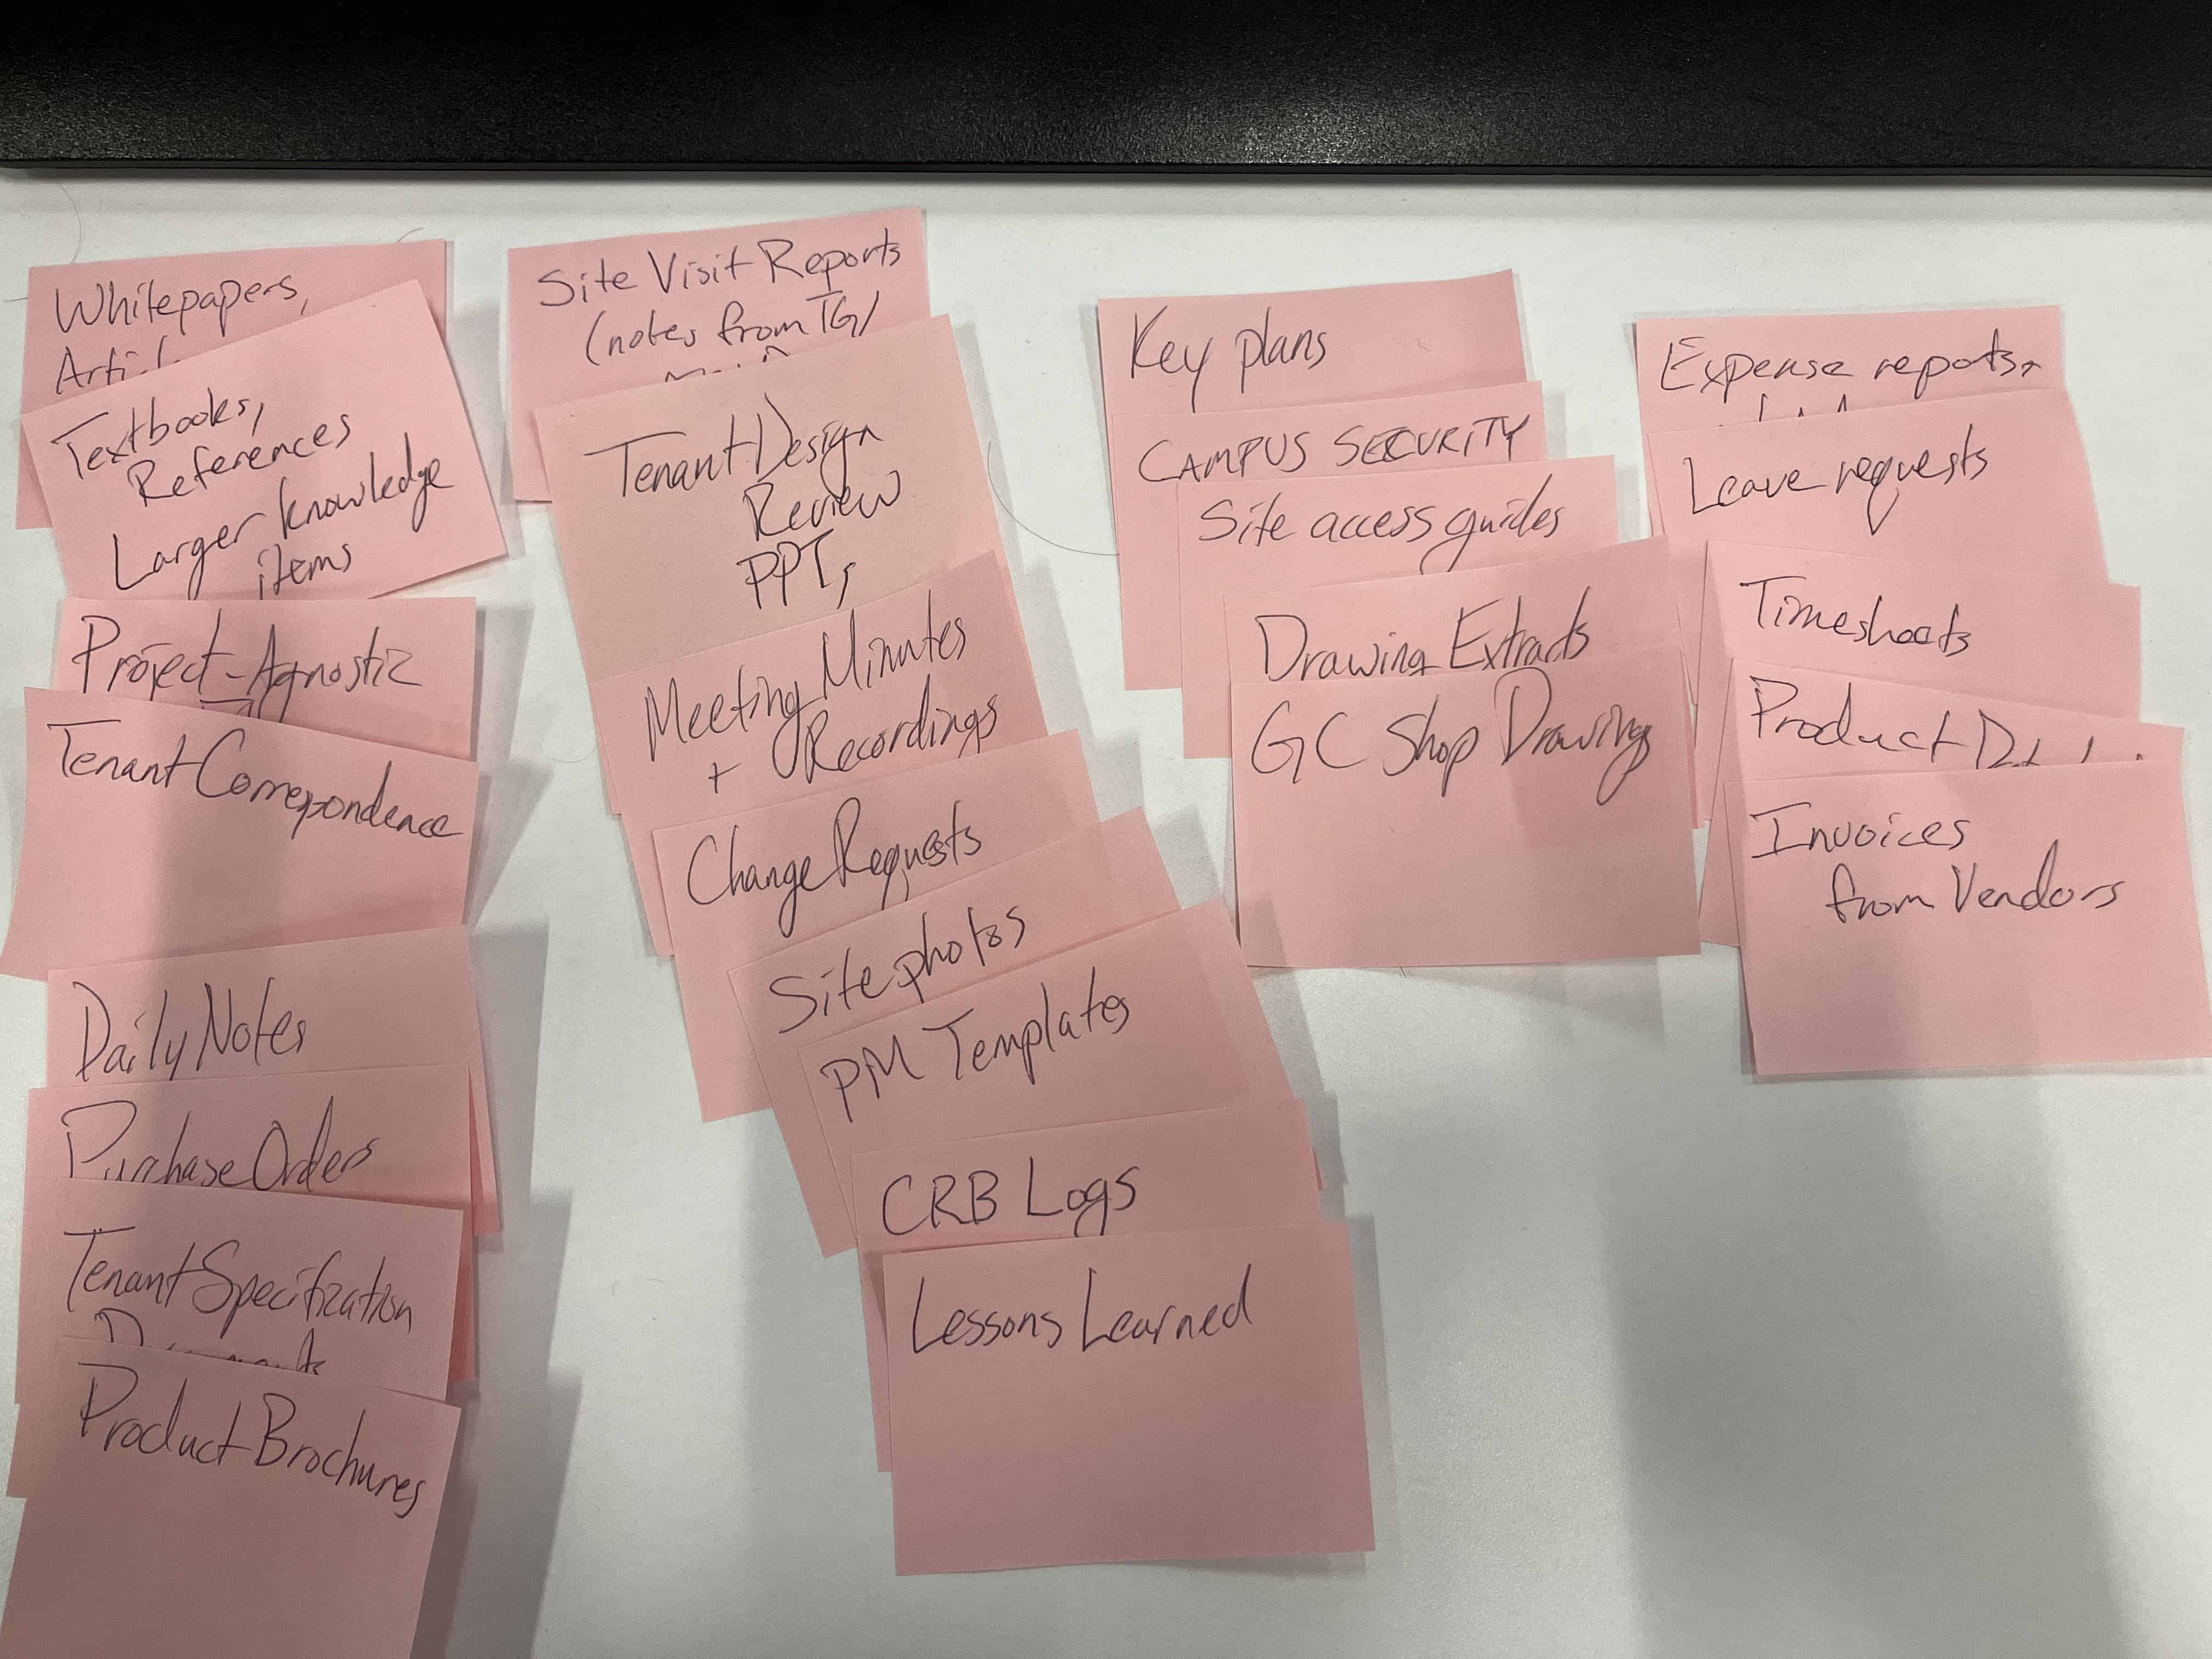 Whitepapers,
Textbooks,
References
Larger knowledge
items
Project-Agnostic
Tenant Correspondence
Daily Notes
Purchase Orders
Tenant Specification
Product Brochures
Site Visit Reports
(notes from TG/
Tenant Design
Review
PPT,
Meeting Minutes
+ Recordings
Change Requests
Site photos
PM Templates
CRB Logs
Lessons Learned
Key plans
CAMPUS SECURITY
Site access guides
Drawing Extracts
GC Shop Drawings
Expense reports,
Leave requests
Timesheets
Product
Invoices
from Vendors